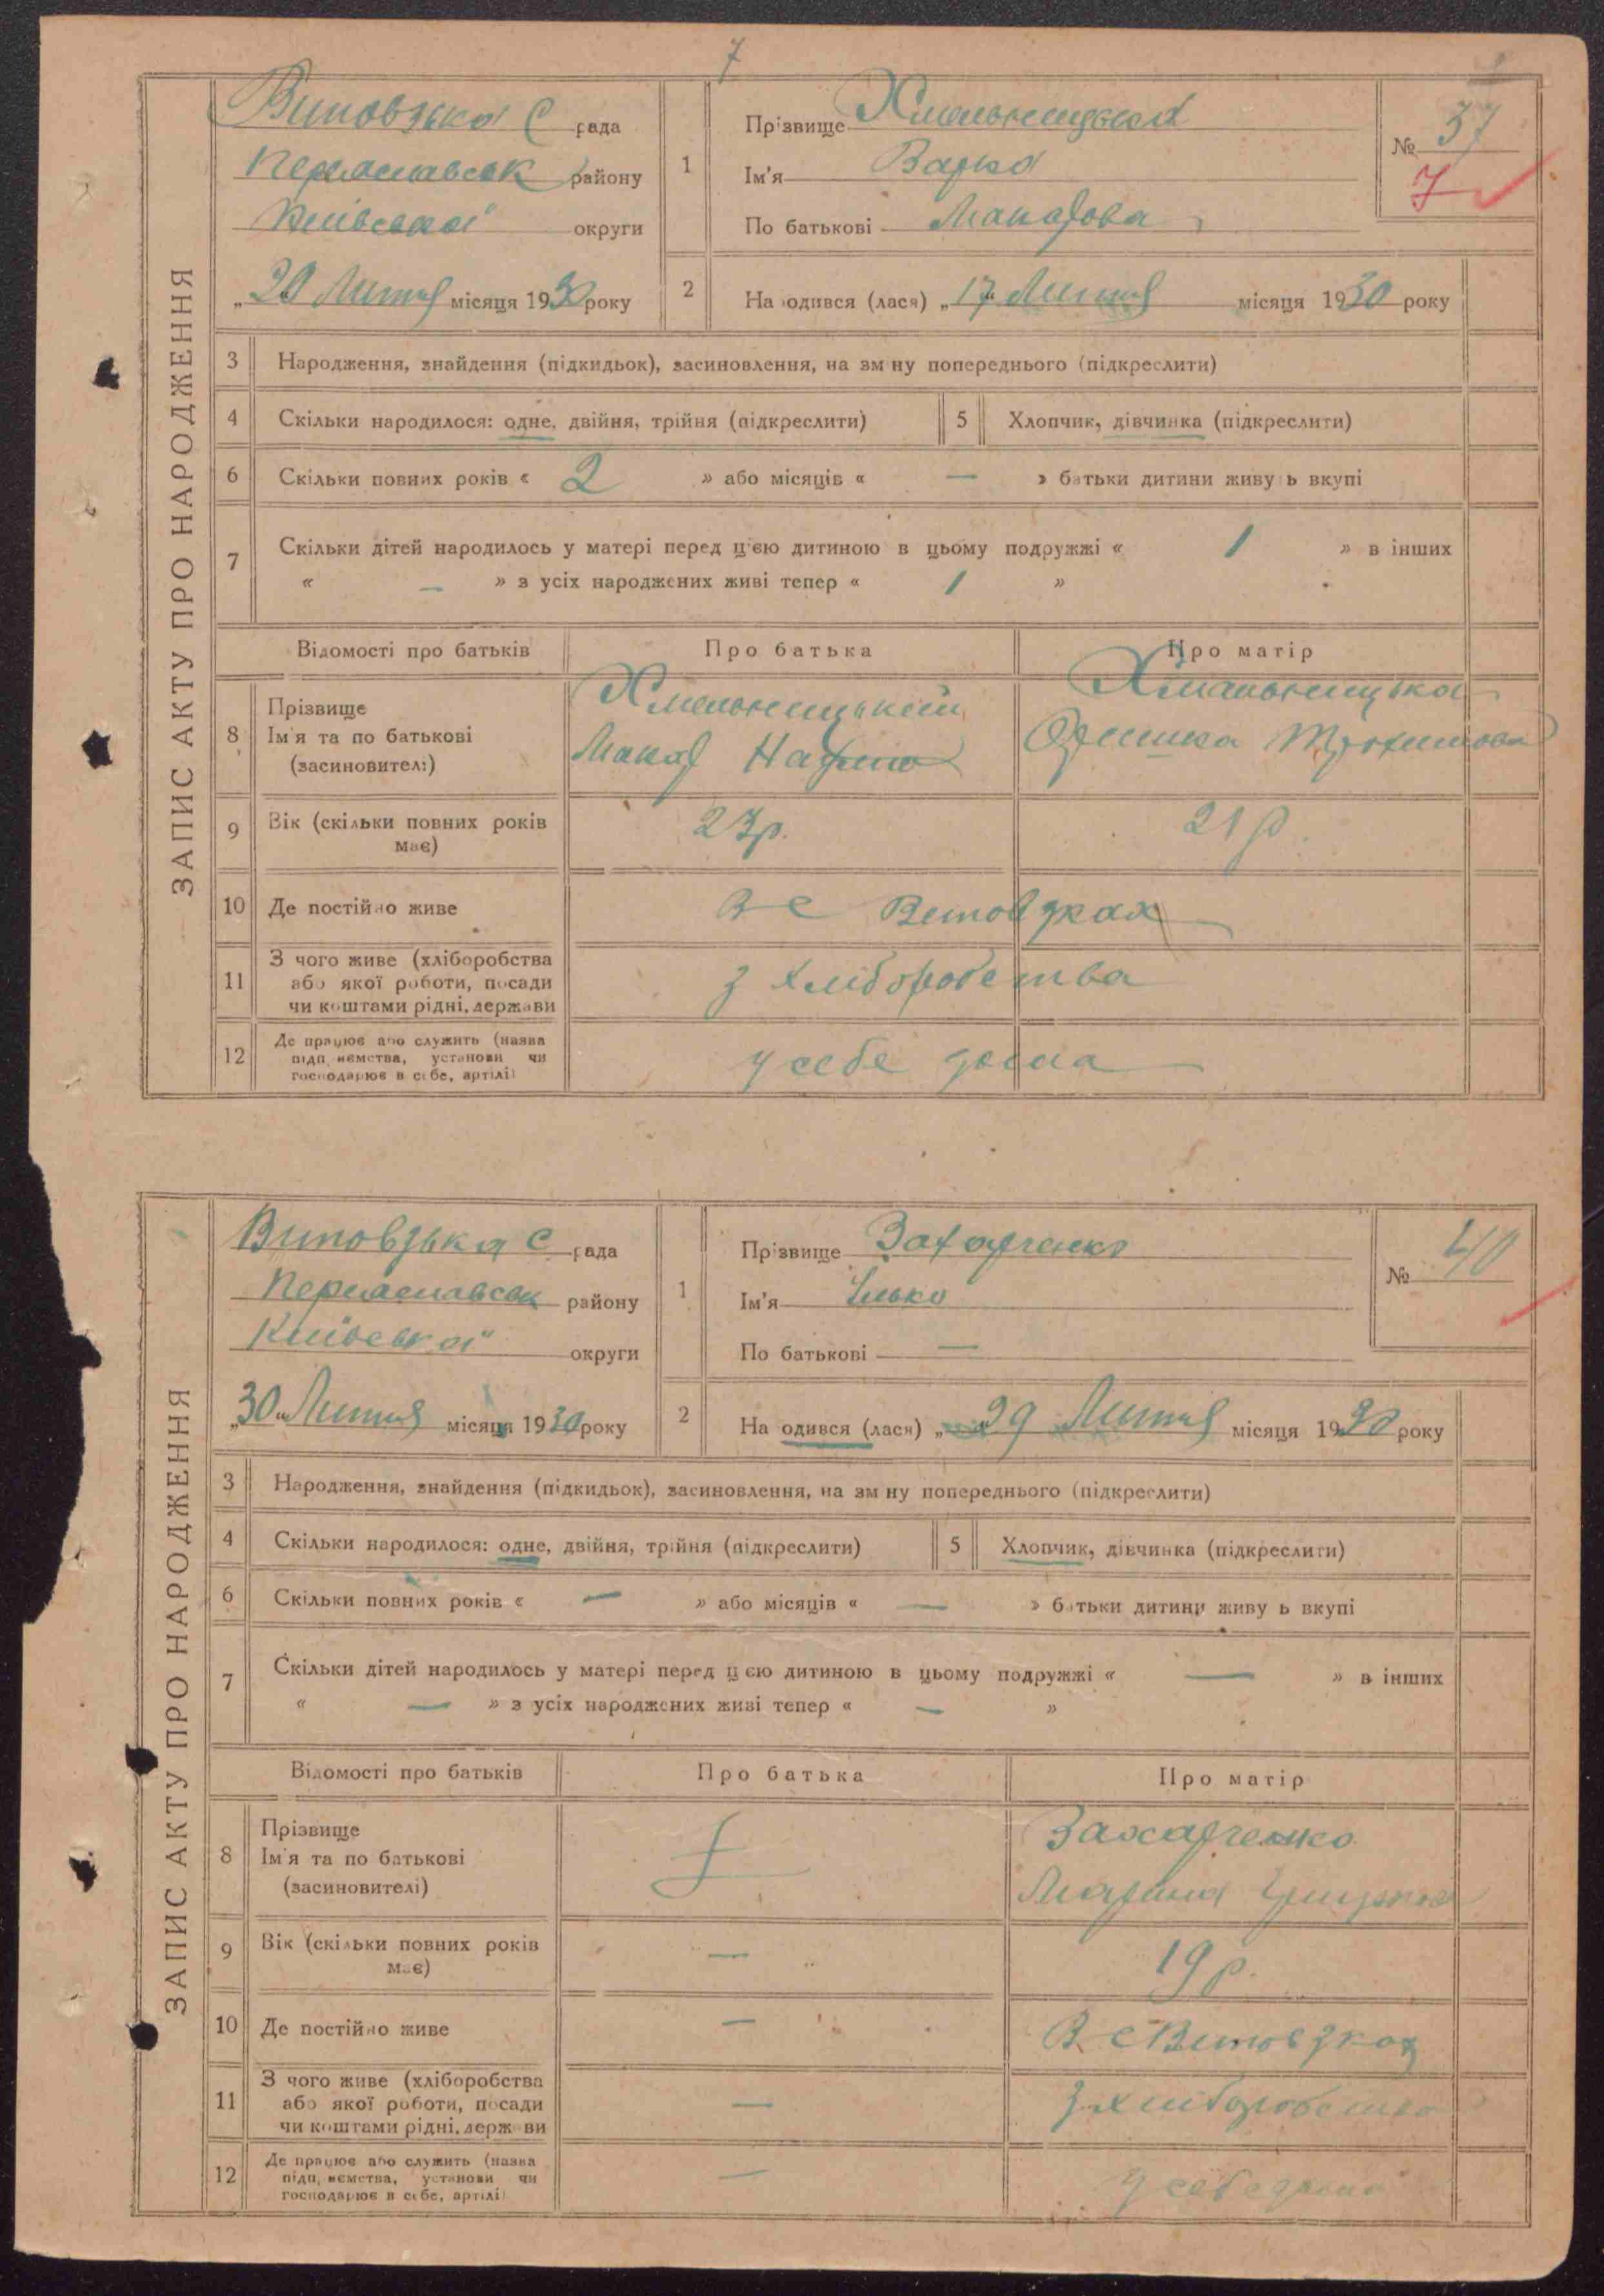 7
ЗАПИС АКТУ ПРО НАРОДЖЕННЯ
Витовзька С рада
Переяславськ району
Київської округи
„20 Липня місяця 1930 року
1 Прізвище Хмельницька
Ім'я Варка
По батькові Макарова
№ 37
7
2 На одився (лася) „17„ Липня місяця 1930 року
3 Народження, знайдення (підкидьок), засиновлення, на зм ну попереднього (підкреслити)
4 Скільки народилося: одне, двійня, трійня (підкреслити) 5 Хлопчик, дівчинка (підкреслити)
6 Скільки повних років « 2 » або місяців « — » батьки дитини живу ь вкупі
7 Скільки дітей народилось у матері перед цією дитиною в цьому подружжі « 1 » в інших
« — » з усіх народжених живі тепер « 1 »
Відомості про батьків Про батька Про матір
8 Прізвище
Ім'я та по батькові
(засиновителі)
Хмельницький
Макар
Хмельницька
Оришка Трохимова
9 Вік (скільки повних років
має)
23р. 21 р.
10 Де постійно живе В с Витовзках
11 З чого живе (хліборобства
або якої роботи, посади
чи коштами рідні, держави
з хліборобства
12 Де працює або служить (назва
підп иємства, установи чи
господарює в себе, артілі)
у себе дома
ЗАПИС АКТУ ПРО НАРОДЖЕННЯ
Витовзька С рада
Переяславськ району
Київської округи
„30„ Липня місяця 1930 року
1 Прізвище Захарченко
Ім'я Ілько
По батькові —
№ 40
2 На одився (лася) „ 29 Липня місяця 1930 року
3 Народження, знайдення (підкидьок), засиновлення, на зм ну попереднього (підкреслити)
4 Скільки народилося: одне, двійня, трійня (підкреслити) 5 Хлопчик, дівчинка (підкреслити)
6 Скільки повних років « — » або місяців « — » батьки дитини живу ь вкупі
7 Скільки дітей народилось у матері перед цією дитиною в цьому подружжі « — » в інших
« — » з усіх народжених живі тепер « — »
Відомості про батьків Про батька Про матір
8 Прізвище
Ім'я та по батькові
(засиновителі)
Захарченко
Марина
9 Вік (скільки повних років
має)
— 19 р.
10 Де постійно живе — В с Витовзках
11 З чого живе (хліборобства
або якої роботи, посади
чи коштами рідні, держави
— з хліборобства
12 Де працює або служить (назва
підп иємства, установи чи
господарює в себе, артілі)
— у себе дома